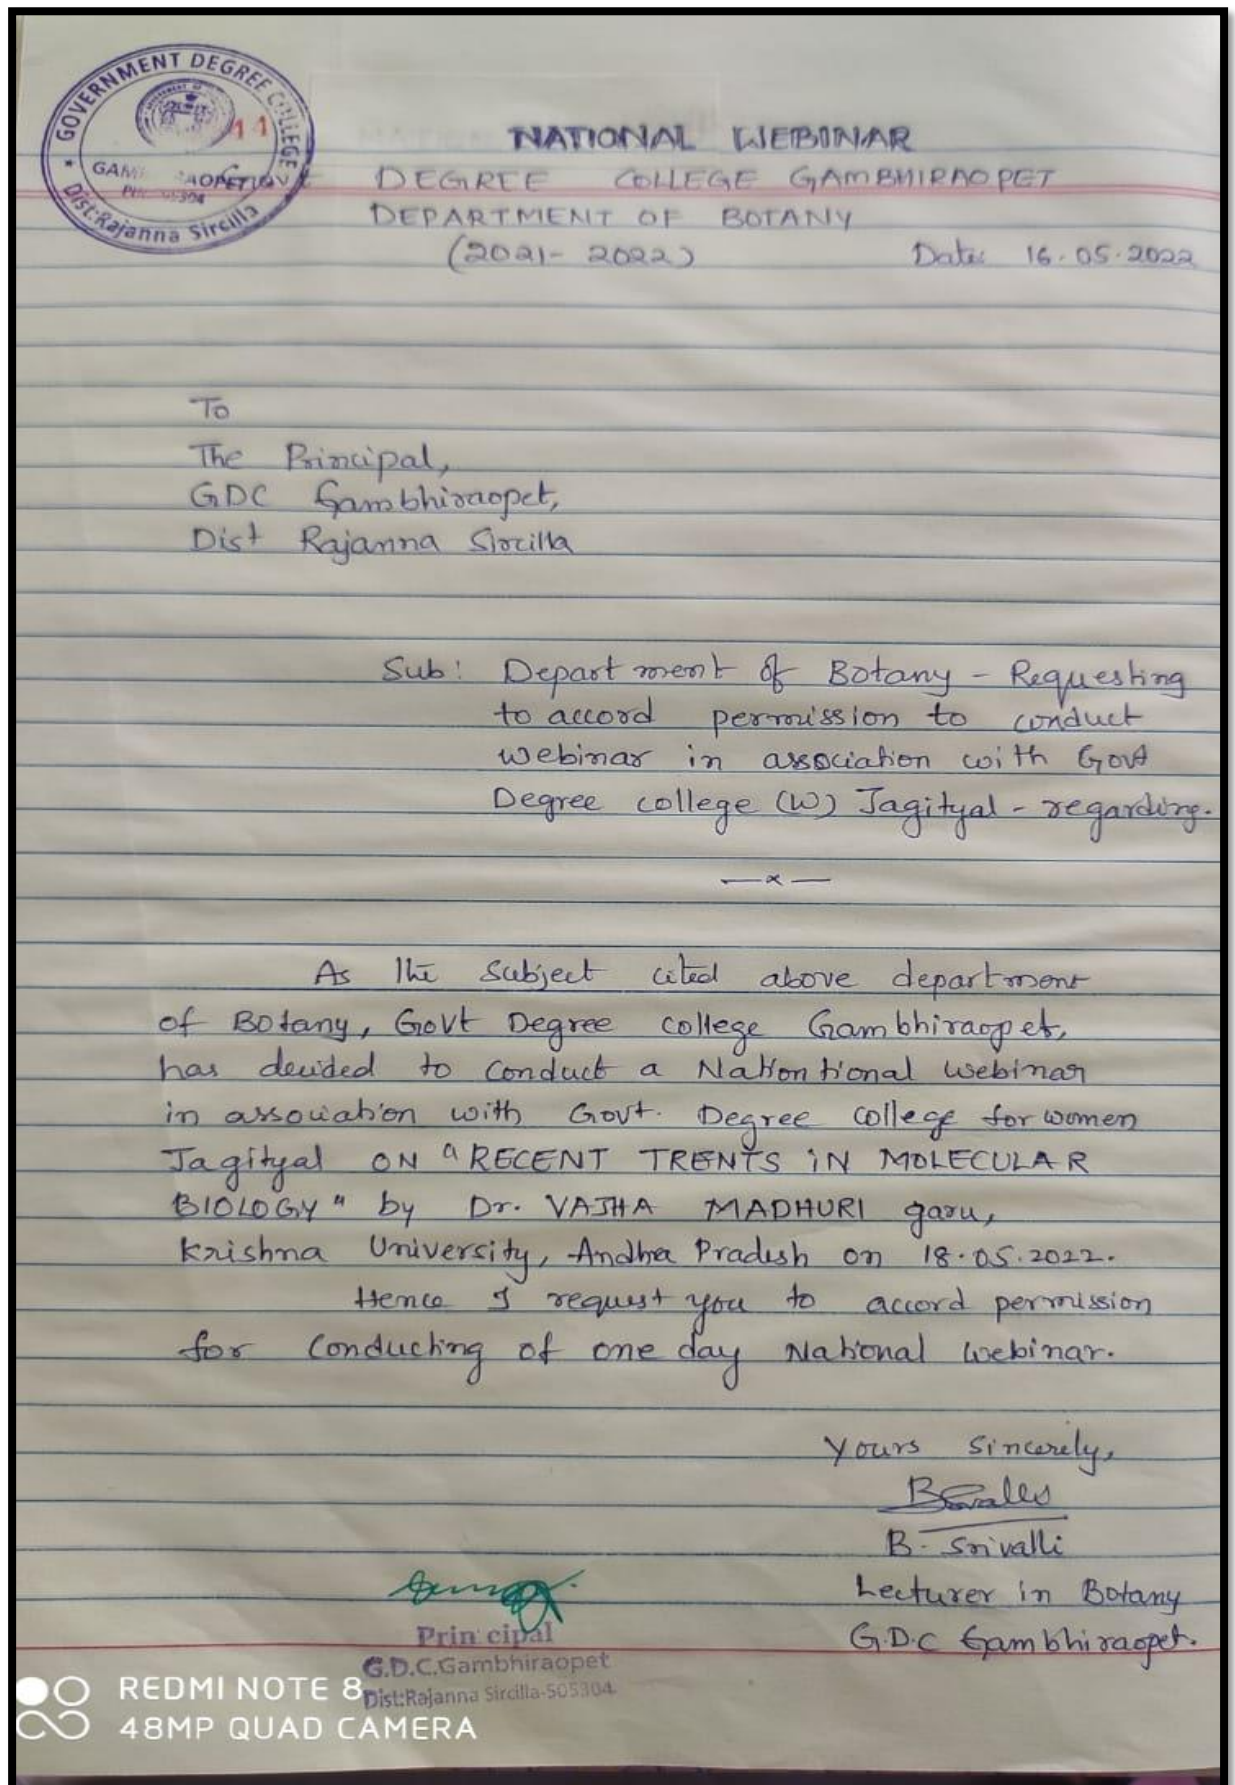 GOVERNMENT DEGREE COLLEGE
11
Dist:Rajanna Sircilla
NATIONAL WEBINAR
DEGREE COLLEGE GAMBHIRAOPET
DEPARTMENT OF BOTANY
(2021- 2022)
Date: 16.05.2022
To
The Principal,
GDC Gambhiraopet,
Dist Rajanna Sircilla
Sub: Department of Botany - Requesting
to accord permission to conduct
webinar in association with Govt
Degree college (W) Jagityal - regarding.
—x—
As the Subject cited above department
of Botany, Govt Degree college Gambhiraopet,
has decided to conduct a Nationtional webinar
in association with Govt. Degree college for women
Jagityal ON "RECENT TRENTS iN MOLECULAR
BIOLOGY" by Dr. VAJHA MADHURI garu,
Krishna University, Andhra Pradesh on 18.05.2022.
Hence I request you to accord permission
for Conducting of one day National webinar.
Yours Sincerely,
B. Srivalli
Lecturer in Botany
G.D.C Gambhiraopet.
Principal
G.D.C.Gambhiraopet
Dist:Rajanna Sircilla-505304
REDMI NOTE 8
48MP QUAD CAMERA